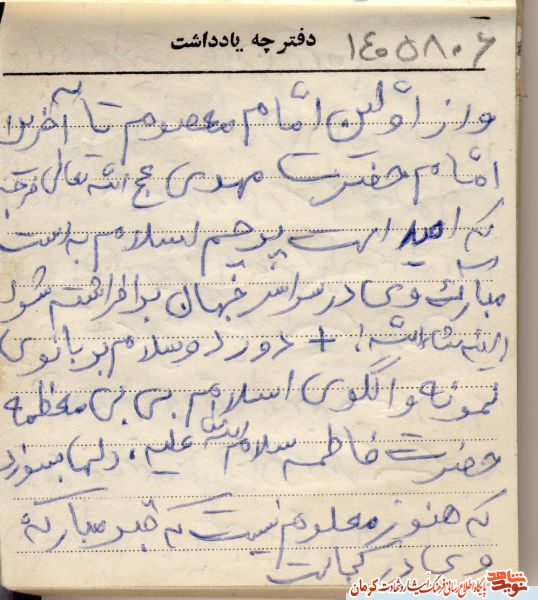 دفترچه یادداشت
۱۴۰۵۸۰۶
و از اولین امام معصوم تا آخرین
امام حضرت مهدی عج الله تعالی فرجه
که امید است پرچم اسلام بدست
مبارک وی در سراسر جهان برافراشته شود
انشاءالله! + درود و سلام بر بانوی
نمونه و الگوی اسلام بی بی معظمه
حضرت فاطمه سلام الله علیه، دلها بسوزد
که هنوز معلوم نیست که قبر مبارکه
وی در کجاست
نوید شاهد پایگاه اطلاع رسانی فرهنگ ایثار و شهادت کرمان